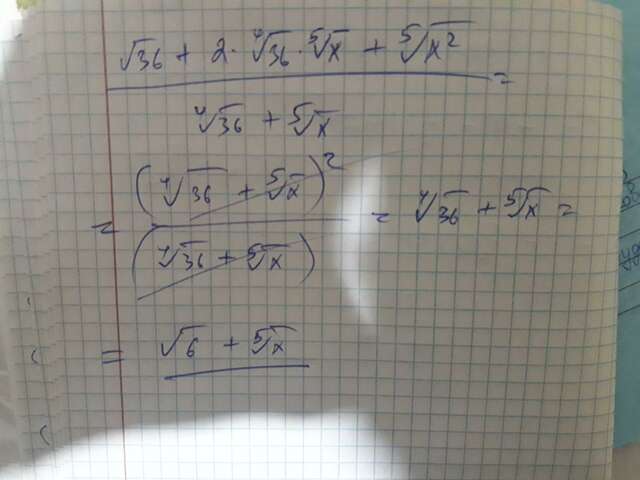 √36 + 2 · ∜36 · ⁵√x + ⁵√x²
=
∜36 + ⁵√x
= (∜36 + ⁵√x)² / (∜36 + ⁵√x) = ∜36 + ⁵√x =
= √6 + ⁵√x